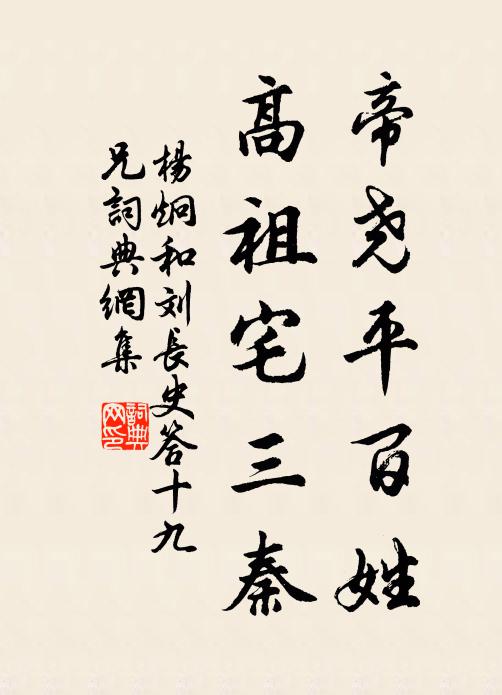 帝尧平百姓
高祖宅三秦
杨炯和刘长史答十九
兄詞典網集
詞典网印